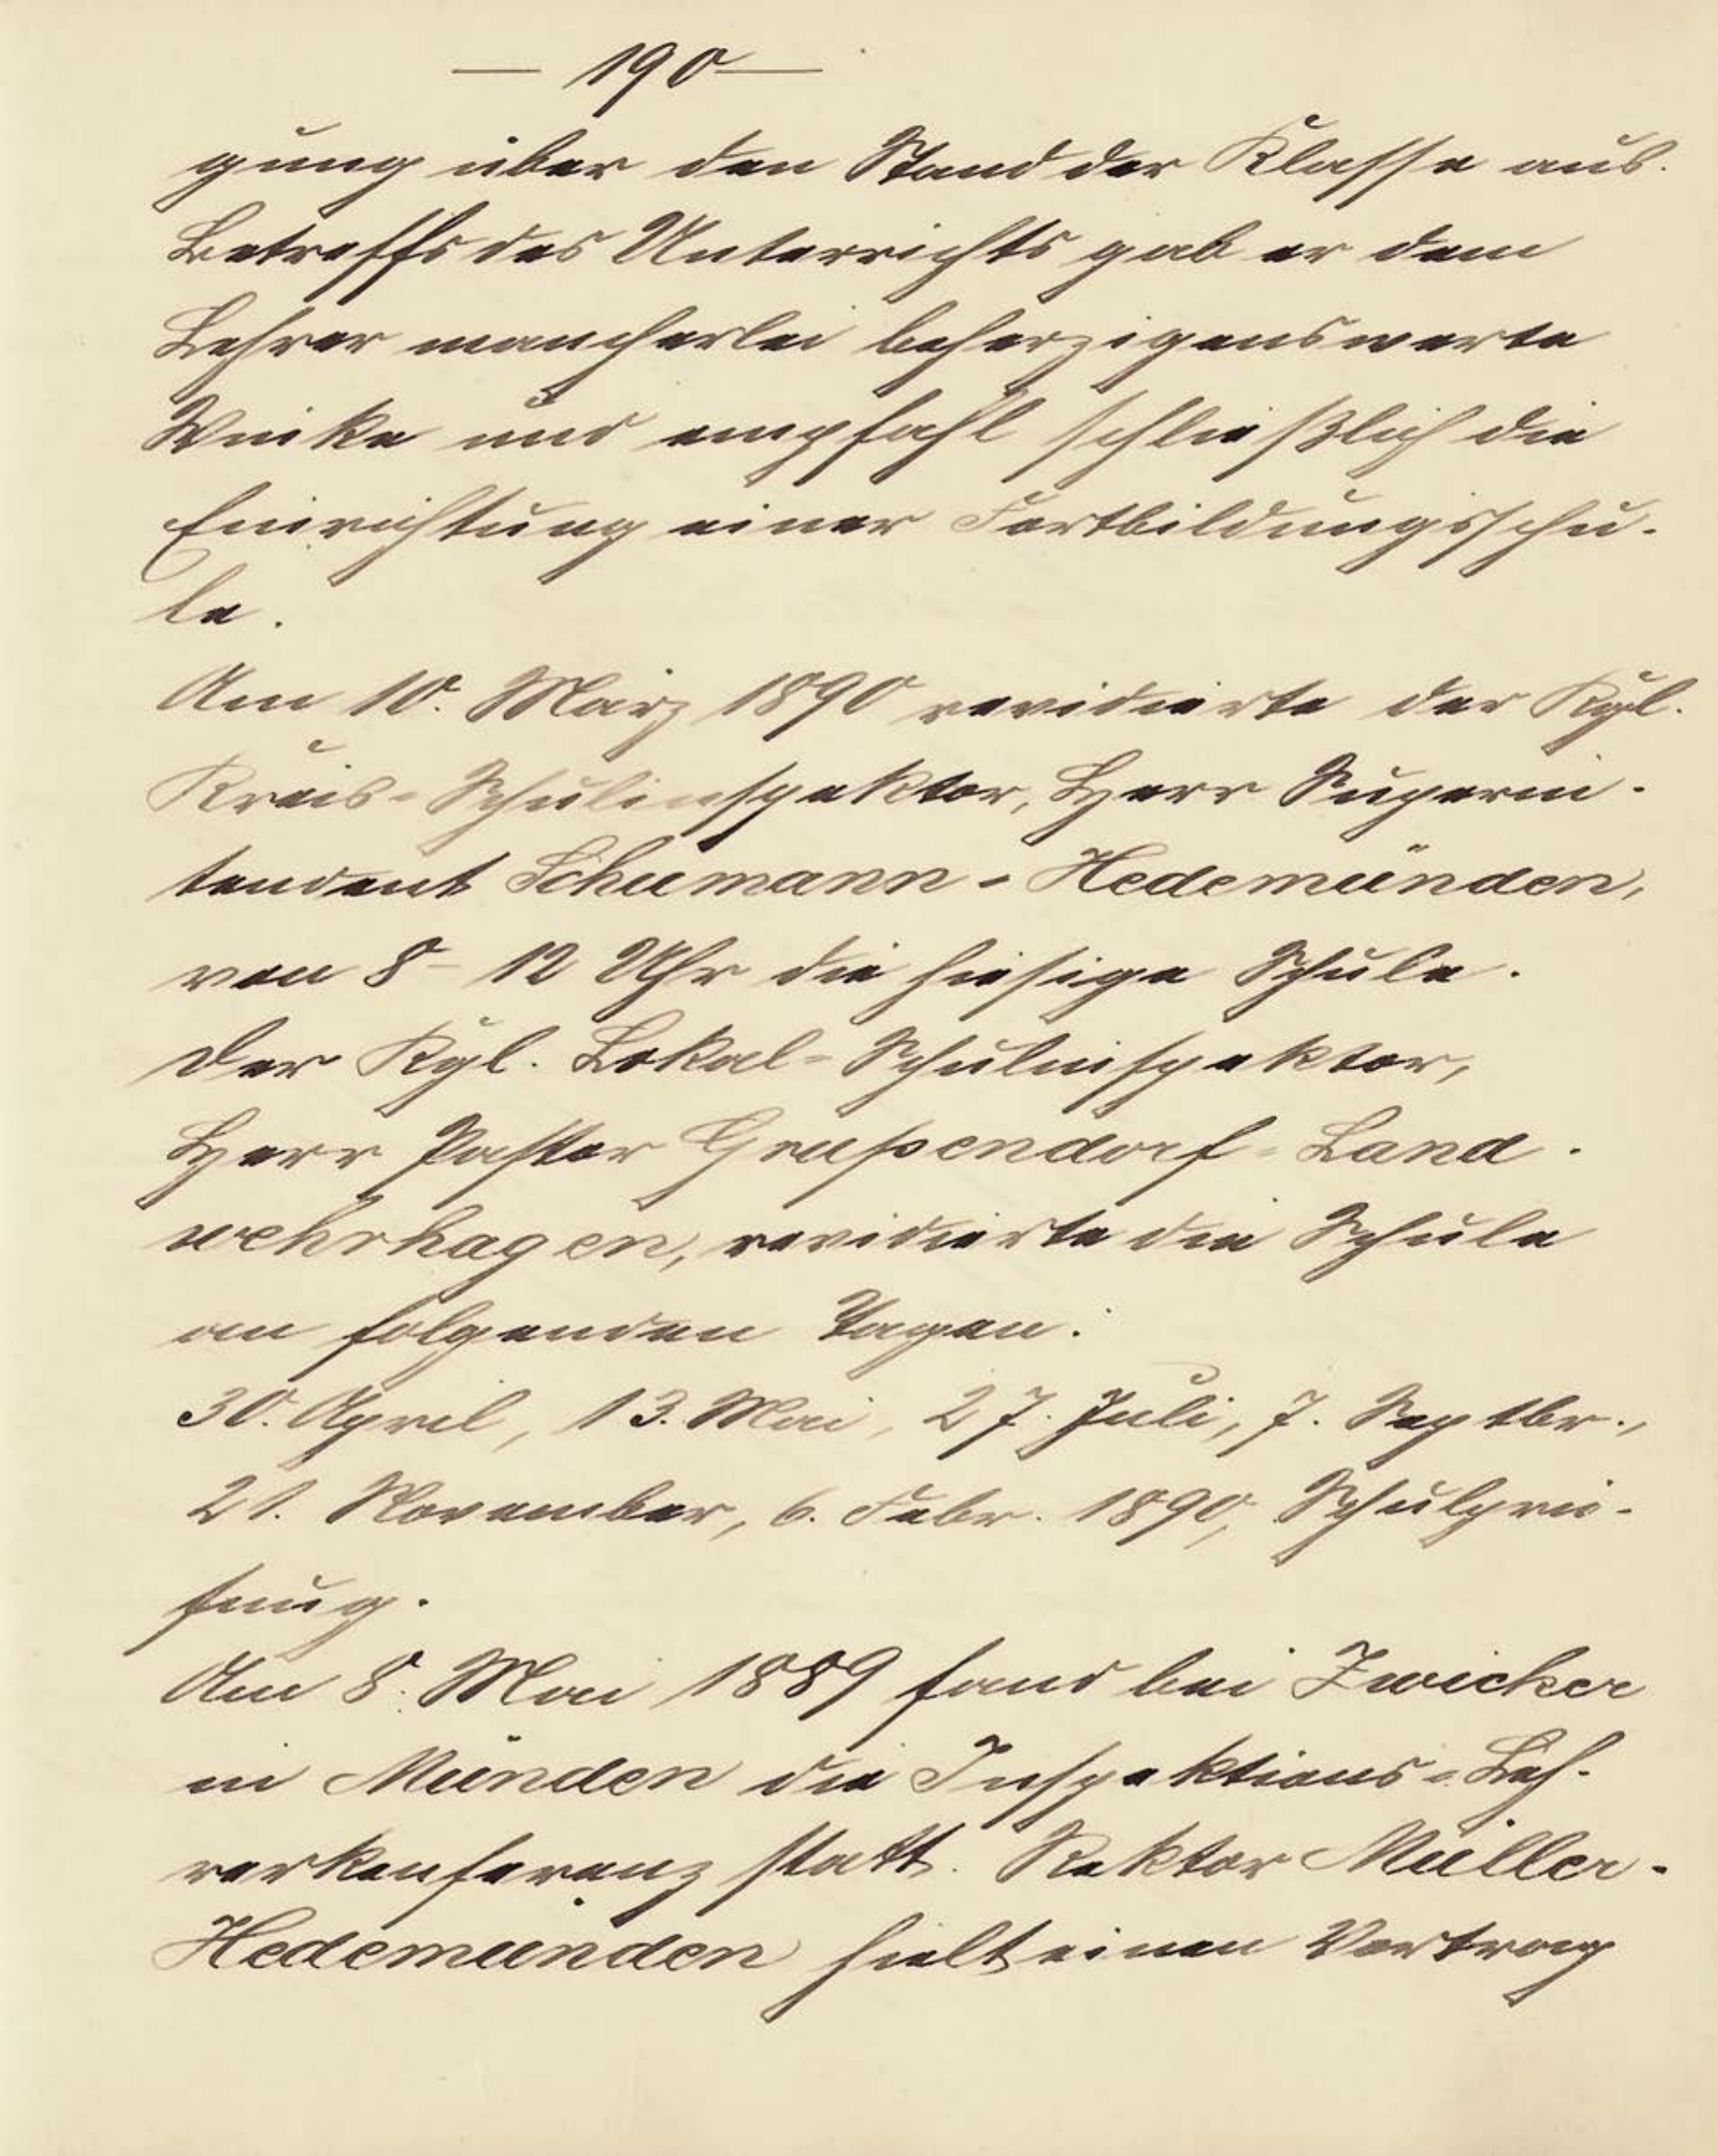 — 190 —
gung über den Stand der Klasse aus.
Betreffs des Unterrichts gab er dem
Lehrer mancherlei beherzigenswerte
Winke und empfahl schließlich die
Einrichtung einer Fortbildungsschu-
le.
Am 10. März 1890 revidierte der Kgl.
Kreis-Schulinspektor, Herr Superin-
tendent Schumann-Hedemünden,
von 8-12 Uhr die hiesige Schule.
Der Kgl. Lokal-Schulinspektor,
Herr Pastor Grußendorf-Land-
wehrhagen, revidierte die Schule
an folgenden Tagen:
30. April, 13. Mai, 27. Juli, 7. Septbr.,
21. November, 6. Febr. 1890, Schulprü-
fung.
Am 8. Mai 1889 fand bei Zwicker
in Münden die Inspektions-Leh-
rerkonferenz statt. Rektor Müller-
Hedemünden hielt einen Vortrag